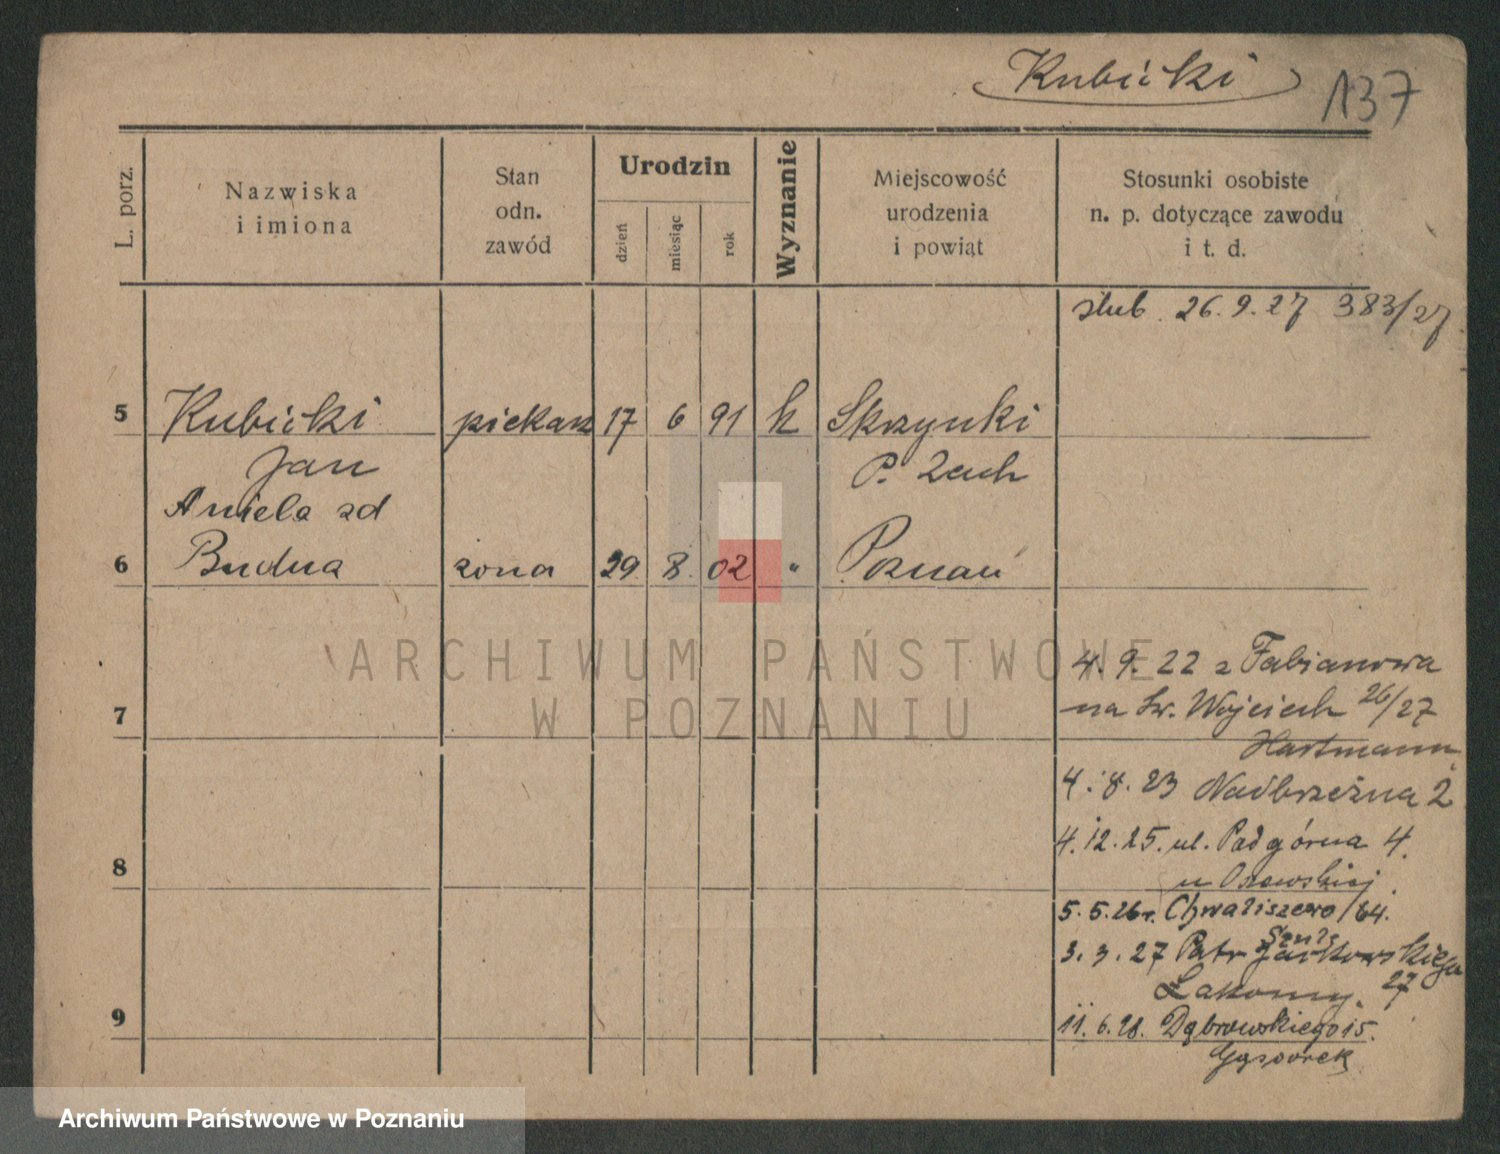 Kubicki 137
L. porz.
Nazwiska
i imiona
Stan
odn.
zawód
Urodzin
dzień
miesiąc
rok
Wyznanie
Miejscowość
urodzenia
i powiąt
Stosunki osobiste
n. p. dotyczące zawodu
i t. d.
ślub 26.9.27 383/27
5 Kubicki piekarz 17 6 91 k Skrzynki
Jan P.
Aniela zd
6 Budna żona 29 8 02 " Poznań
ARCHIWUM PAŃSTWOWE
W POZNANIU
4.9.22 z Fabianowa
7 na Św. Wojciech 26/27
Hartmann
4.8.23 Nadbrzeżna 2
8 4.12.25. ul. Podgórna 4.
u
5.5.26r. Chwaliszewo 64.
3.3.27 Patr. Jackowskiego
27
Łakomy.
9 11.6.28. Dąbrowskiego 15.
Gąsiorek
Archiwum Państwowe w Poznaniu